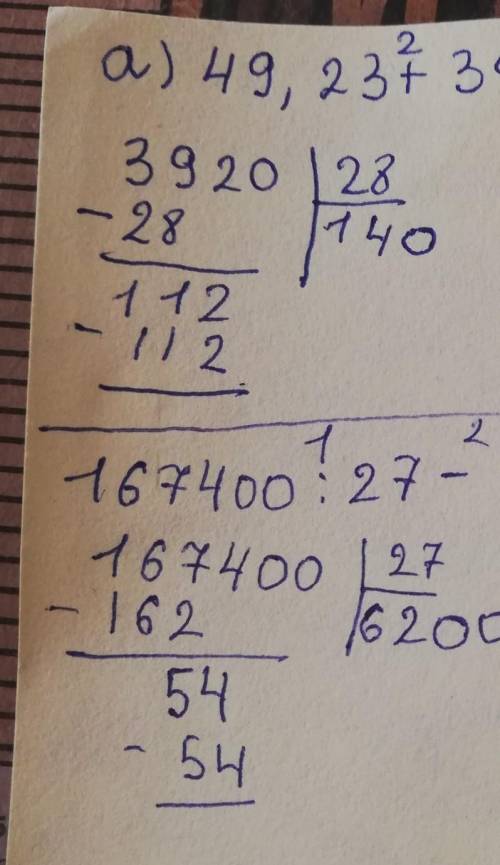 а) 49, 23 + 2 3
3920 | 28
- 28 140
112
- 112
167400 : 1 27 - 2
167400 | 27
- 162 6200
54
- 54